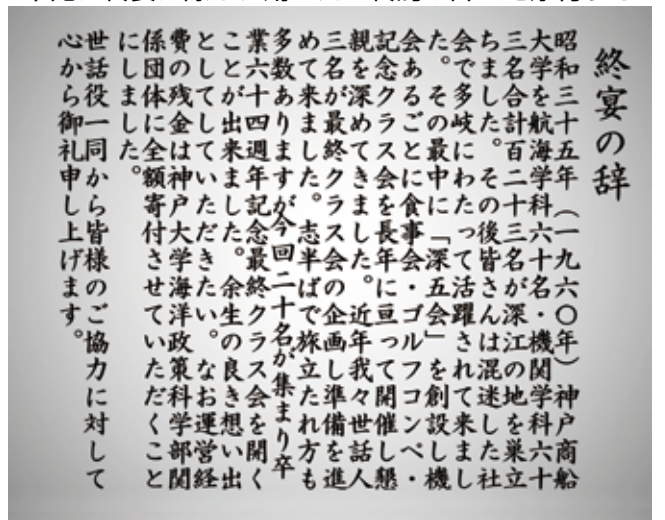 終宴の辞
昭和三十五年(一九六〇年)神戸商船
大学を航海学科六十名・機関学科六十
三名合計百二十三名が深江の地を巣立
ちました。その後皆さんは混迷した社
会で多岐にわたって活躍されて来まし
た。その最中に「深五会」を創設し機
会あるごとに食事会・ゴルフコンペ・
記念クラス会を長年に亘って開催し懇
親を深めてきました。近年我々世話人
三名が最終クラス会の企画し準備を進
めて来ました。志半ばで旅立たれ方も
多数ありますが今回二十名が集まり卒
業六十四週年記念最終クラス会を開く
ことが出来ました。余生の良き想い出
としてしていただきたい。なお運営経
費の残金は神戸大学海洋政策科学部関
係団体に全額寄付させていただくこと
にしました。
世話役一同から皆様のご協力に対して
心から御礼申し上げます。